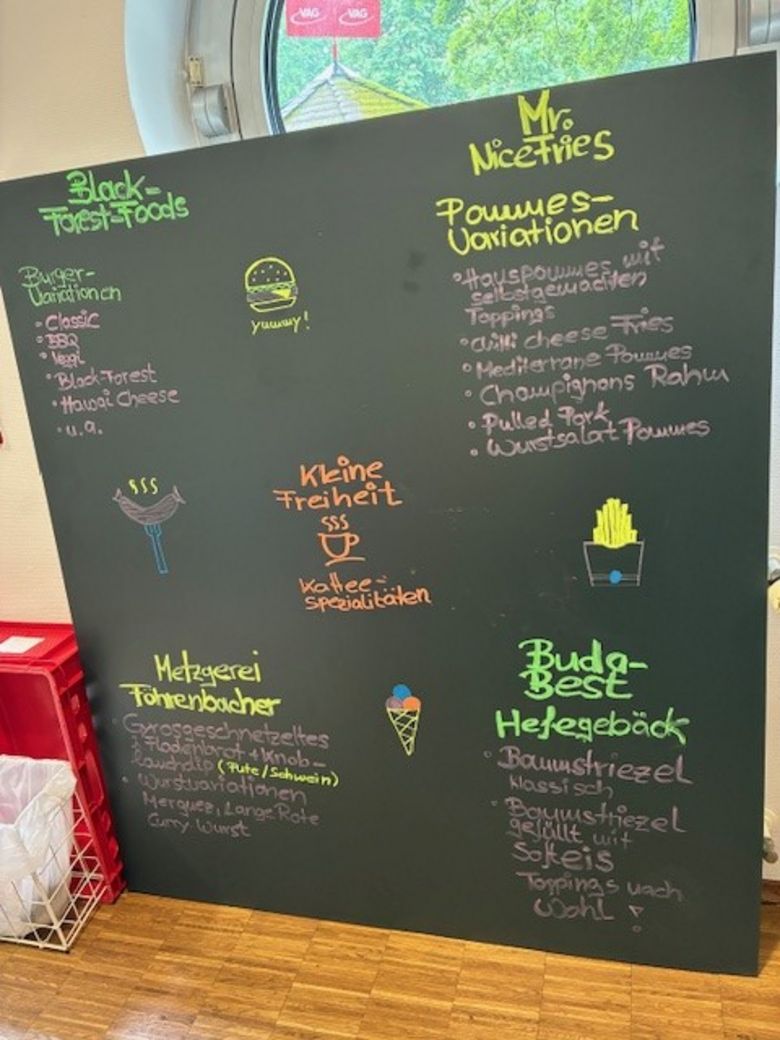 VAG VAG
Black-
Forest-Foods
Burger-
Variationen
• Classic
• BBQ
• Veggi
• Black-Forest
• Hawai Cheese
• u.a.
yummy!
Mr.
NiceFries
Pommes-
Variationen
• Hauspommes mit
selbstgemachten
Toppings
• Chilli Cheese Fries
• Mediterrane Pommes
• Champignons Rahm
• Pulled Pork
• Wurstsalat Pommes
Kleine
Freiheit
Kaffee-
spezialitäten
Metzgerei
Föhrenbacher
• Gyrosgeschnetzeltes
+ Fladenbrot + Knob-
lauchdip (Pute/Schwein)
• Wurstvariationen
Merguez, Lange Rote
Curry-Wurst
Buda-
Best
Hefegebäck
• Baumstriezel
klassisch
• Baumstriezel
gefüllt mit
Softeis
Toppings nach
Wohl !